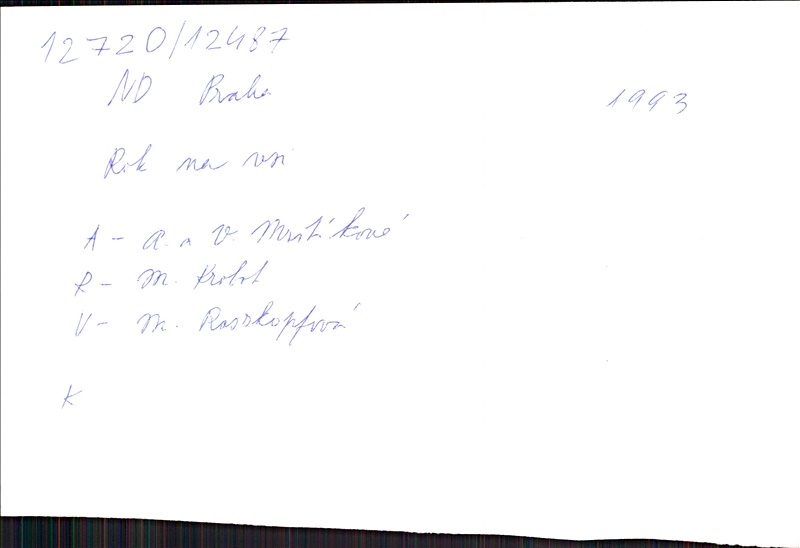 12720/12487
ND Praha
1993
Rok na vsi
A - A. a V. Mrštíkové
R - M. Krobot
V - M. Roszkopfová
K